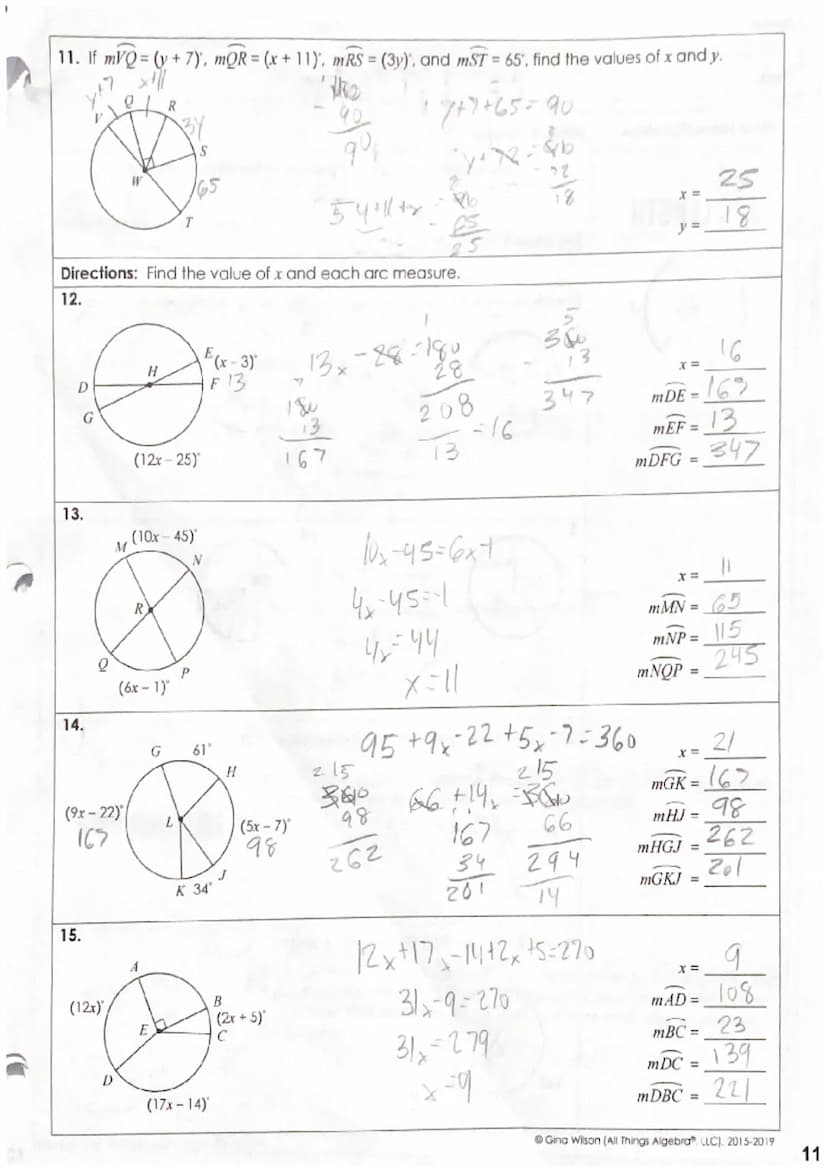 11. If mVQ = (y + 7)°, mQR = (x + 11)°, mRS = (3y)°, and mST = 65°, find the values of x and y.
y+7 x+11
V Q R
3y
S
W
65
T
90
90
y+7+65=90
72
18
65
25
x = 25
y = 18
Directions: Find the value of x and each arc measure.
12.
E (x – 3)°
H
D F 13
G
(12x – 25)°
13x -28 =180
28
208
13 =16
180
13
167
360
13
347
x = 16
mDE = 167
mEF = 13
mDFG = 347
13.
M (10x – 45)°
N
R
Q P
(6x – 1)°
10x-45=6x-1
4x-45=-1
4x=44
x=11
x = 11
mMN = 65
mNP = 115
mNQP = 245
14.
G 61°
H
(9x – 22)°
167
L
(5x – 7)°
98
J
K 34°
95 +9x-22 +5x-7=360
66 +14x =360
2 15
360
98
262
167
34
201
2 15
66
294
14
x = 21
mGK = 167
mHJ = 98
mHGJ = 262
mGKJ = 201
15.
A
(12x)°
B
(2x + 5)°
E C
D
(17x – 14)°
12x+17x-14+2x+5=270
31x-9=270
31x=279
x=9
x = 9
mAD = 108
mBC = 23
mDC = 139
mDBC = 221
© Gina Wilson (All Things Algebra®, LLC), 2015-2019
11